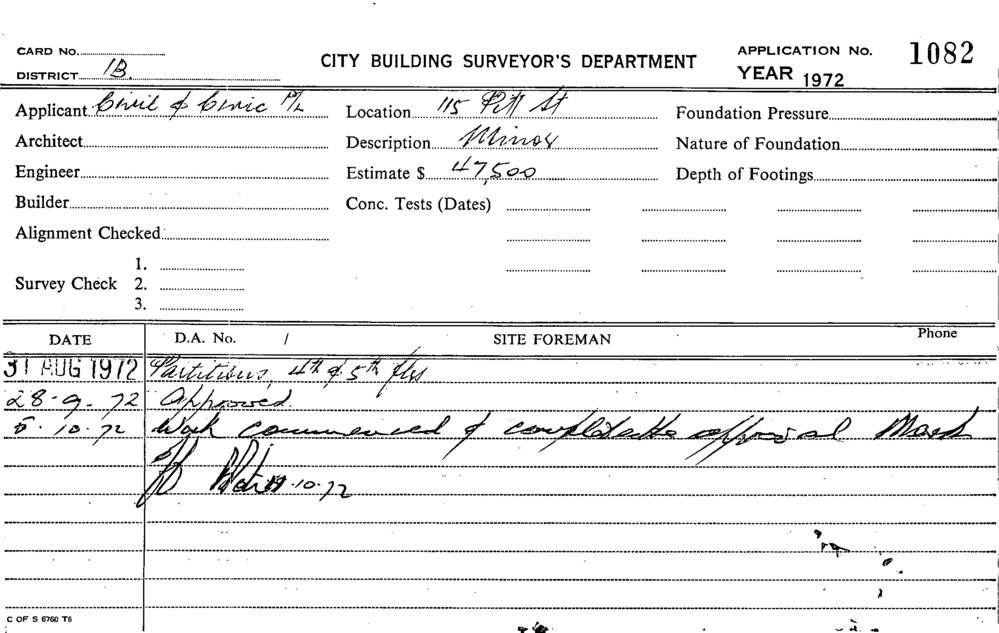 CARD No.
CITY BUILDING SURVEYOR'S DEPARTMENT
APPLICATION No. 1082
DISTRICT 1B.
YEAR 1972
Applicant Civil & Civic P/L
Location 115 Pitt St
Foundation Pressure
Architect
Description Minor
Nature of Foundation
Engineer
Estimate $ 47,500
Depth of Footings
Builder
Conc. Tests (Dates)
Alignment Checked
Survey Check
1.
2.
3.
DATE
D.A. No. /
SITE FOREMAN
Phone
31 AUG 1972 Partitions, 4th & 5th flrs
28.9.72 Approved.
5.10.72 Work commenced & approval
10.72
C OF S 6760 T6